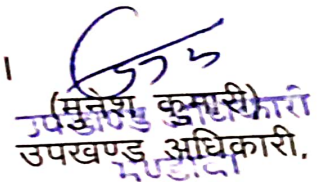 ।
(मुनेश कुमारी)
उपखण्ड अधिकारी
उपखण्ड अधिकारी,